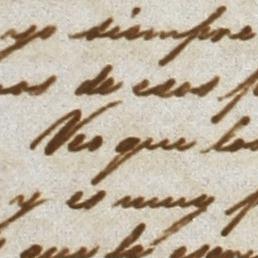 yo siempre
de esos
Veo que los
y es muy
que la